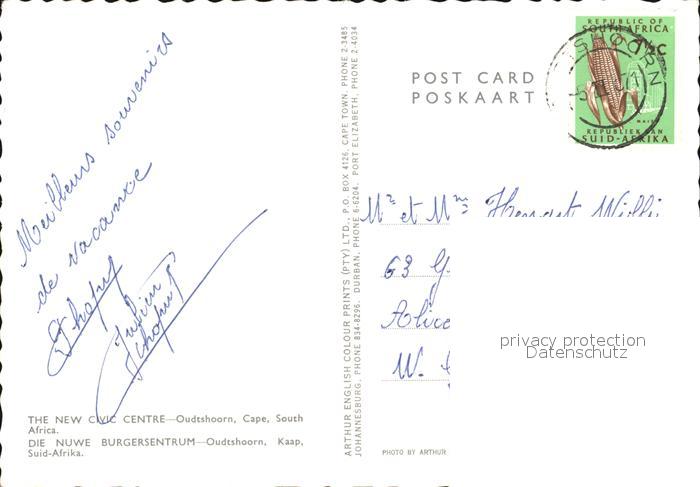 Meilleurs souvenirs
de vacance
Julien
THE NEW CIVIC CENTRE—Oudtshoorn, Cape, South
Africa.
DIE NUWE BURGERSENTRUM—Oudtshoorn, Kaap,
Suid-Afrika.
ARTHUR ENGLISH COLOUR PRINTS (PTY) LTD., P.O. BOX 4126, CAPE TOWN, PHONE 2-3485
JOHANNESBURG, PHONE 834-8296. DURBAN, PHONE 6-6204. PORT ELIZABETH, PHONE 2-4034
POST CARD
POSKAART
REPUBLIC OF
SOUTH AFRICA
REPUBLIEK VAN
SUID-AFRIKA
Mr et Mme
63
W.
privacy protection
Datenschutz
PHOTO BY ARTHUR